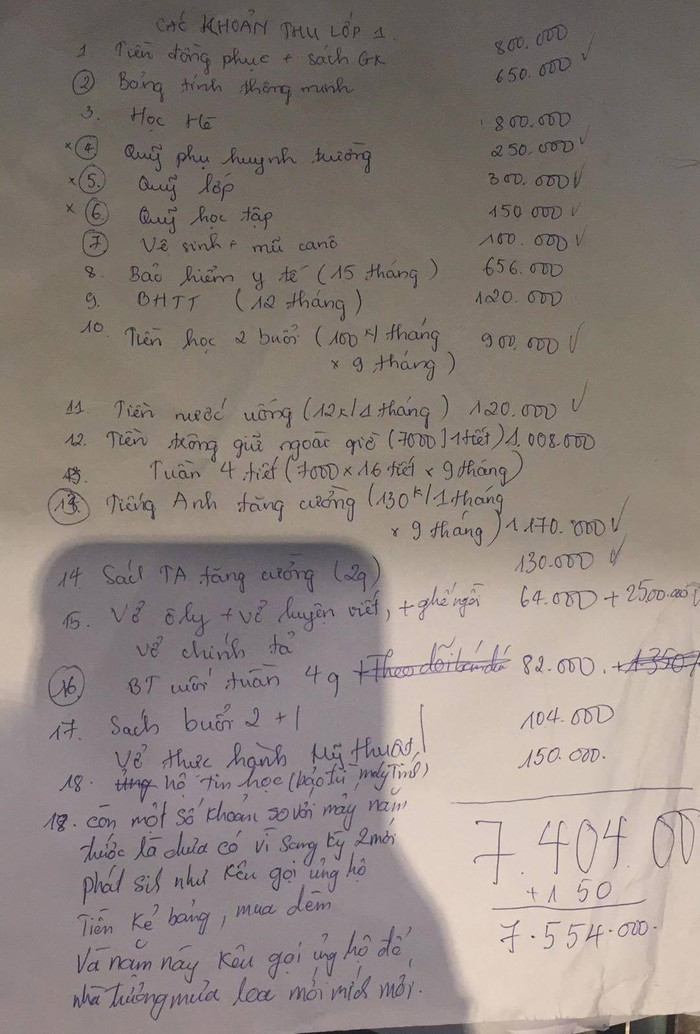 CÁC KHOẢN THU LỚP 1.
1 Tiền đồng phục + sách GK 800.000
2 Bảng tính thông minh 650.000 ✓
3. Học Hè 800.000
x 4 Quỹ phụ huynh trường 250.000 ✓
x 5. Quỹ lớp 300.000 ✓
x 6 Quỹ học tập 150.000 ✓
7 Vệ sinh + mũ canô 100.000 ✓
8. Bảo hiểm y tế (15 tháng) 656.000
9. BHTT (12 tháng) 120.000
10. Tiền học 2 buổi (100k/tháng 900.000 ✓
x 9 tháng)
11. Tiền nước uống (12k/1 tháng) 120.000 ✓
12. Tiền trông giữ ngoài giờ (7000/1 tiết) 1.008.000
Tuần 4 tiết (7000 x 16 tiết x 9 tháng)
13. Tiếng Anh tăng cường (130k/1 tháng
x 9 tháng) 1.170.000 ✓
14. Sách TA tăng cường (2q) 130.000 ✓
15. Vở ô ly + vở luyện viết, + ghế ngồi 64.000 +
vở chính tả
16 BT cuối tuần 4q 82.000.
17. Sách buổi 2 + 104.000
Vở thực hành Mỹ thuật 150.000.
18. hộ tin học (bảo trì máy tính)
18. còn một số khoản so với mấy năm
trước là chưa có vì sang kỳ 2 mới
phát sih như kêu gọi ủng hộ
Tiền kẻ bảng, mua đệm
Và năm nay kêu gọi ủng hộ để
nhà trường mua loa mới mích mới.
7.404.00
+ 150
7.554.000.